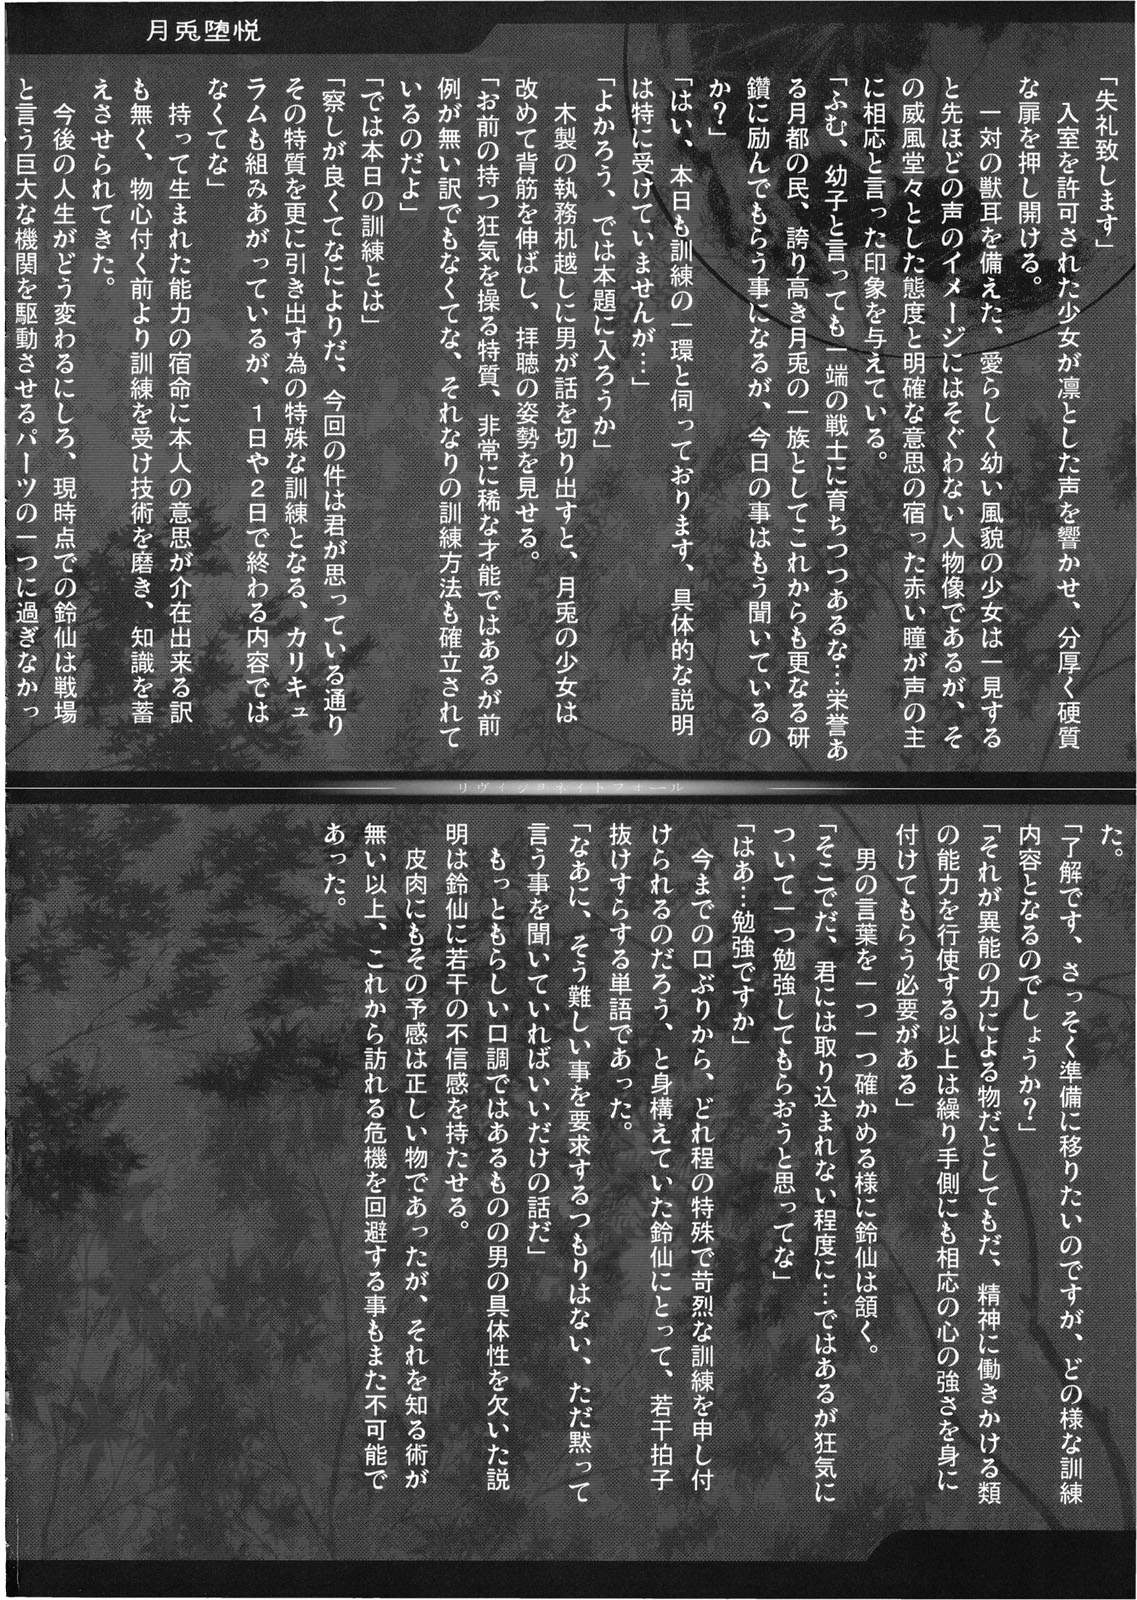 月兎堕悦
「失礼致します」
　入室を許可された少女が凛とした声を響かせ、分厚く硬質
な扉を押し開ける。
　一対の獣耳を備えた、愛らしく幼い風貌の少女は一見する
と先ほどの声のイメージにはそぐわない人物像であるが、そ
の威風堂々とした態度と明確な意思の宿った赤い瞳が声の主
に相応と言った印象を与えている。
「ふむ、幼子と言っても一端の戦士に育ちつつあるな…栄誉あ
る月都の民、誇り高き月兎の一族としてこれからも更なる研
鑽に励んでもらう事になるが、今日の事はもう聞いているの
か？」
「はい、本日も訓練の一環と伺っております、具体的な説明
は特に受けていませんが…」
「よかろう、では本題に入ろうか」
　木製の執務机越しに男が話を切り出すと、月兎の少女は
改めて背筋を伸ばし、拝聴の姿勢を見せる。
「お前の持つ狂気を操る特質、非常に稀な才能ではあるが前
例が無い訳でもなくてな、それなりの訓練方法も確立されて
いるのだよ」
「では本日の訓練とは」
「察しが良くてなによりだ、今回の件は君が思っている通り
その特質を更に引き出す為の特殊な訓練となる、カリキュ
ラムも組みあがっているが、1日や2日で終わる内容では
なくてな」
　持って生まれた能力の宿命に本人の意思が介在出来る訳
も無く、物心付く前より訓練を受け技術を磨き、知識を蓄
えさせられてきた。
　今後の人生がどう変わるにしろ、現時点での鈴仙は戦場
と言う巨大な機関を駆動させるパーツの一つに過ぎなかっ
リヴィジョネイトフォール
た。
「了解です、さっそく準備に移りたいのですが、どの様な訓練
内容となるのでしょうか？」
「それが異能の力による物だとしてもだ、精神に働きかける類
の能力を行使する以上は繰り手側にも相応の心の強さを身に
付けてもらう必要がある」
　男の言葉を一つ一つ確かめる様に鈴仙は頷く。
「そこでだ、君には取り込まれない程度に…ではあるが狂気に
ついて一つ勉強してもらおうと思ってな」
「はあ…勉強ですか」
　今までの口ぶりから、どれ程の特殊で苛烈な訓練を申し付
けられるのだろう、と身構えていた鈴仙にとって、若干拍子
抜けすらする単語であった。
「なあに、そう難しい事を要求するつもりはない、ただ黙って
言う事を聞いていればいいだけの話だ」
　もっともらしい口調ではあるものの男の具体性を欠いた説
明は鈴仙に若干の不信感を持たせる。
　皮肉にもその予感は正しい物であったが、それを知る術が
無い以上、これから訪れる危機を回避する事もまた不可能で
あった。